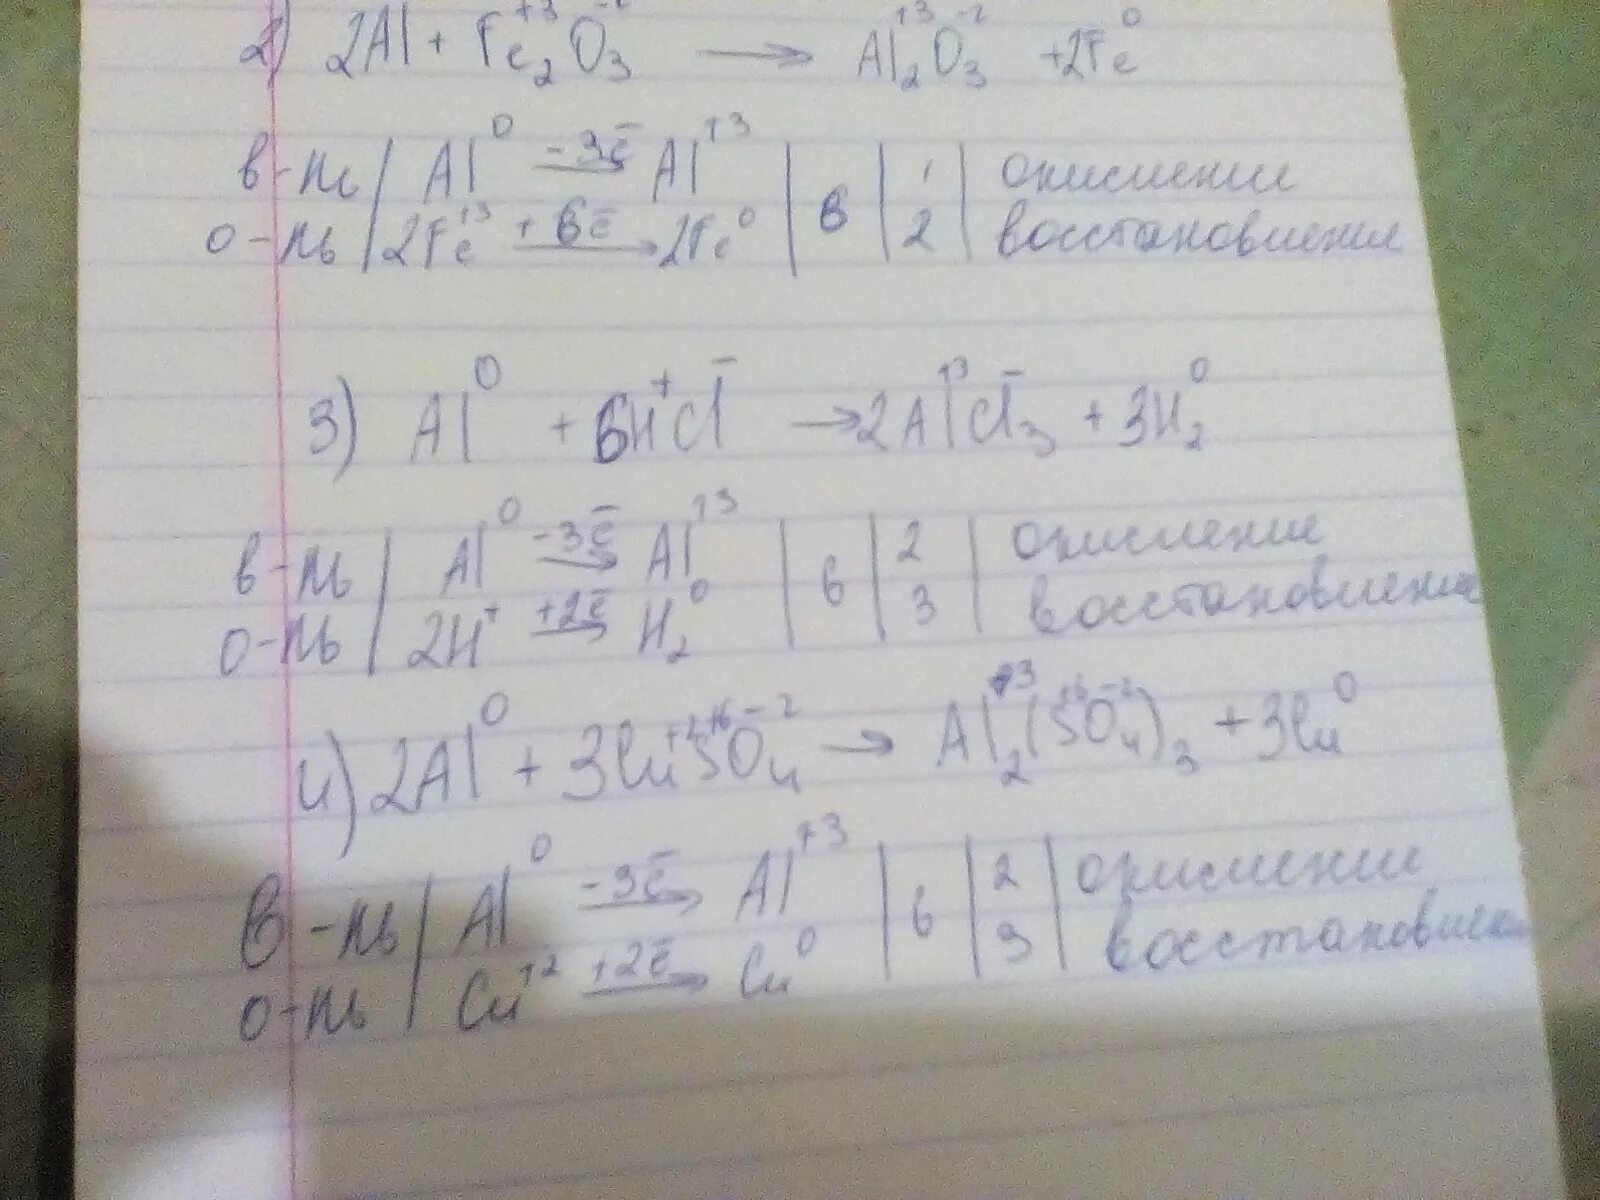 2) 2Al + Fe₂⁺³O₃⁻² → Al₂⁺³O₃⁻² + 2Fe⁰
в-ль | Al⁰ -3ē→ Al⁺³ | 6 | 1 | окисление
о-ль | 2Fe⁺³ +6ē→ 2Fe⁰ | 2 | восстановление
3) Al⁰ + 6H⁺Cl⁻ → 2Al⁺³Cl₃⁻ + 3H₂⁰
в-ль | Al⁰ -3ē→ Al⁺³ | 6 | 2 | окисление
о-ль | 2H⁺ +2ē→ H₂⁰ | 3 | восстановление
4) 2Al⁰ + 3Cu⁺²S⁺⁶O₄⁻² → Al₂⁺³(S⁺⁶O₄⁻²)₃ + 3Cu⁰
в-ль | Al⁰ -3ē→ Al⁺³ | 6 | 2 | окисление
о-ль | Cu⁺² +2ē→ Cu⁰ | 3 | восстановлен